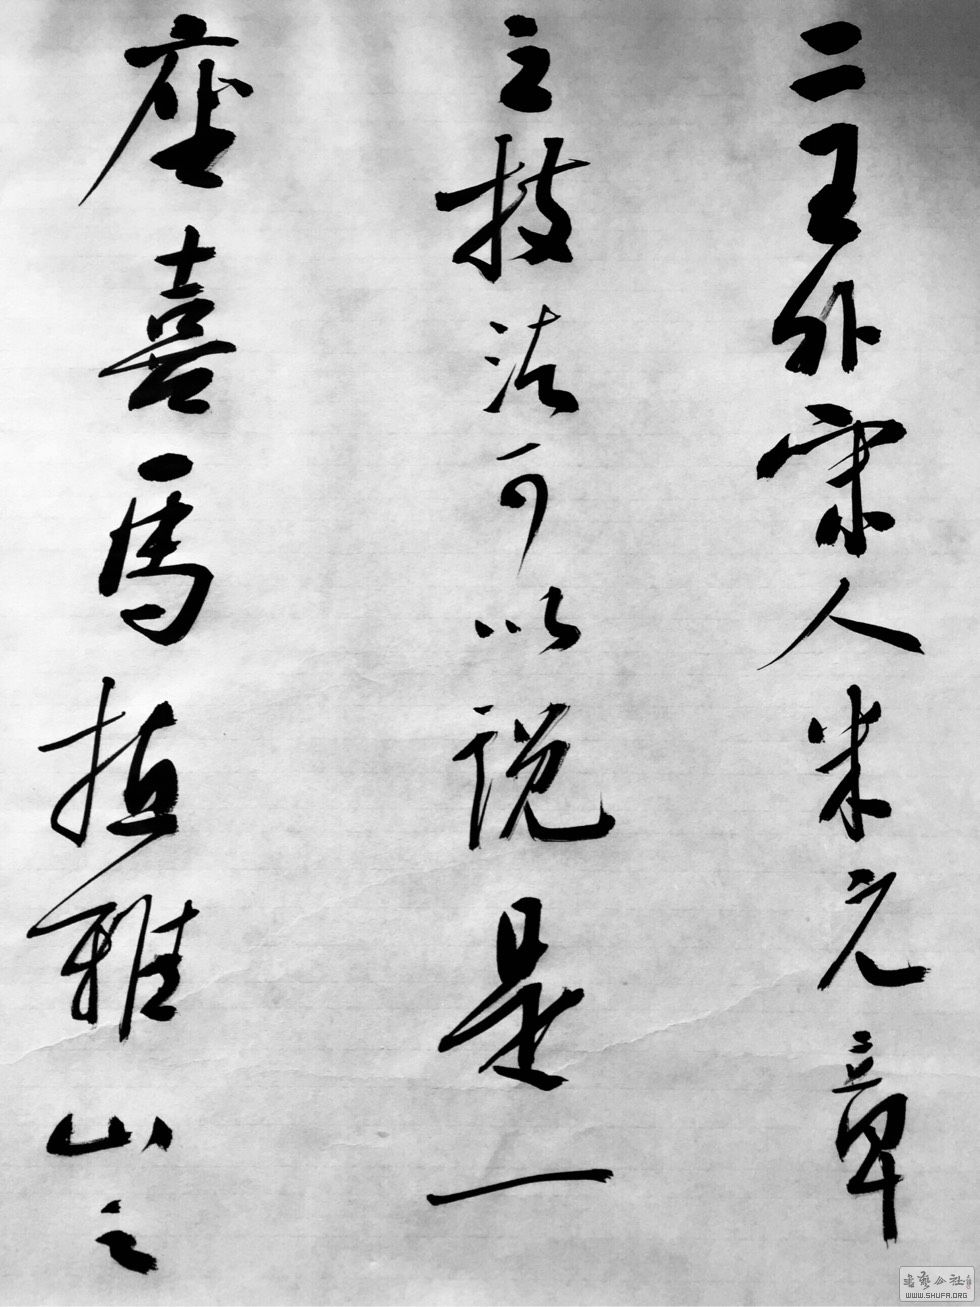 二王外宋人米元章
之技法可以说是一
座喜马拉雅山之
书艺公社
WWW.SHUFA.ORG